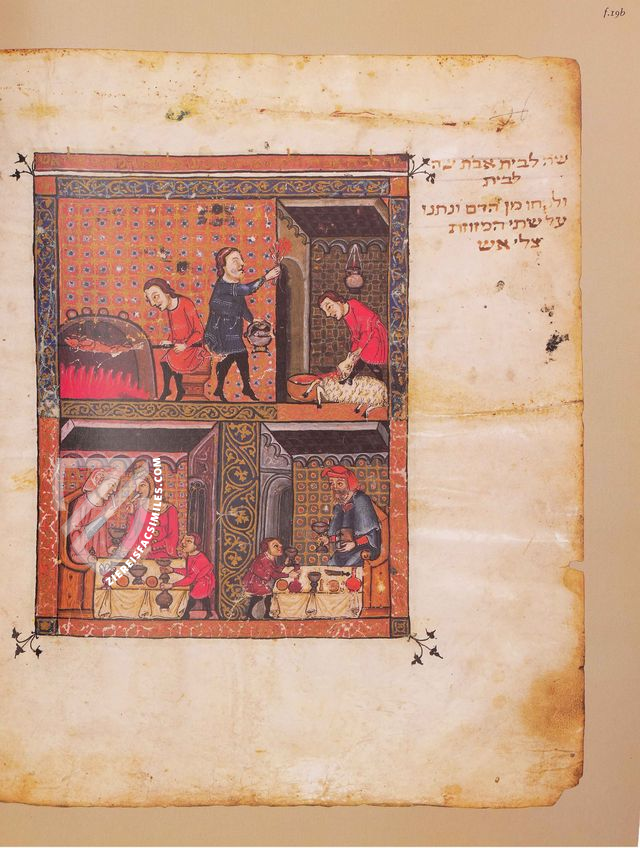 f.19b
שה לבית אבת שה
לבית
ולקחו מן הדם ונתנו
על שתי המזוזת
צלי אש
ZIEREISFACSIMILES.COM